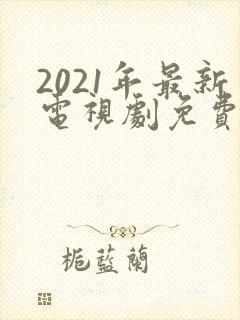 2021年最新
電視劇免費
栀藍蘭